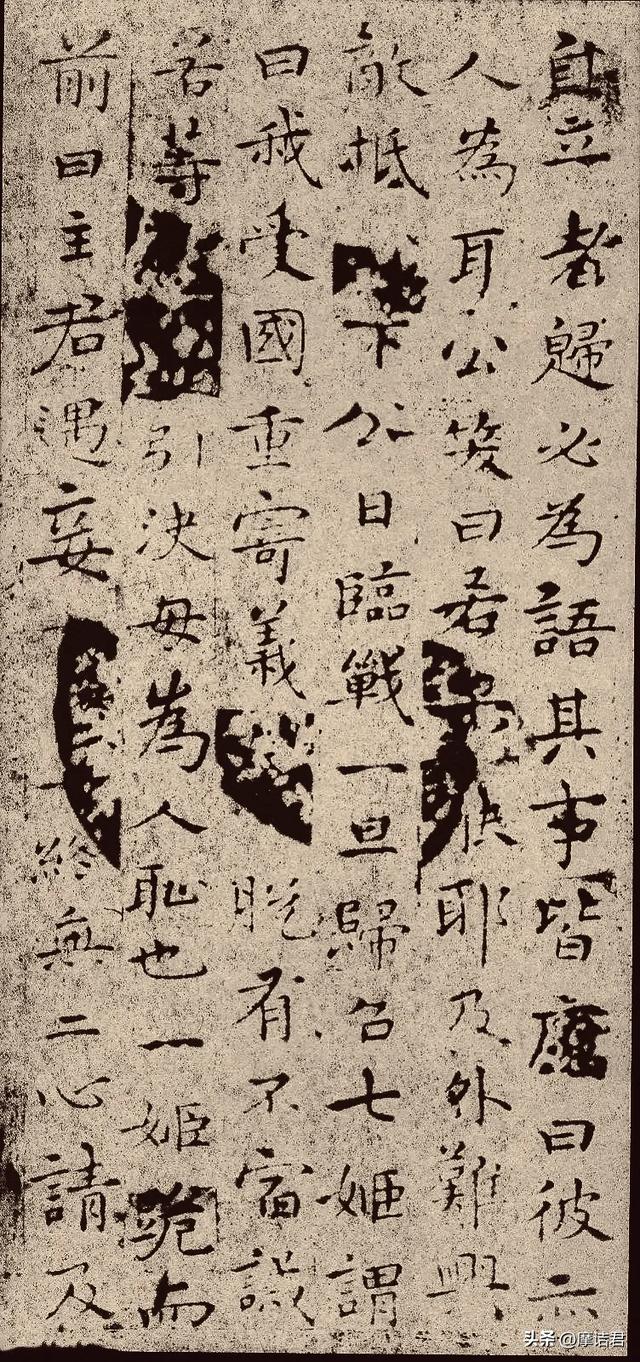 自立者歸必為語其事皆曰彼亦
人為耳公笑曰若耶及外難興
敵抵下公日臨戰一旦歸召七姬謂
曰我受國重寄義脫有不宿誡
若等引決毋為人恥也一姬跪而
前曰主君遇妾終無二心請及
头条 @摩诘君